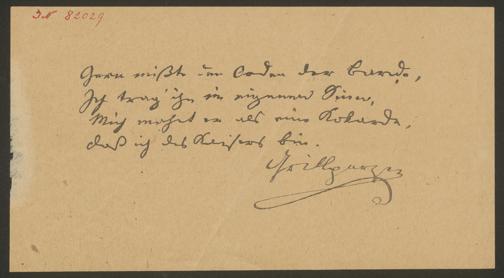 I.N 82029
Gern mißt' ich den Orden der Barde,
Ich trag' ihn im eigenen Sinn,
Mich mahnt er als eine Kokarde,
daß ich des Kaisers bin.
Grillparzer